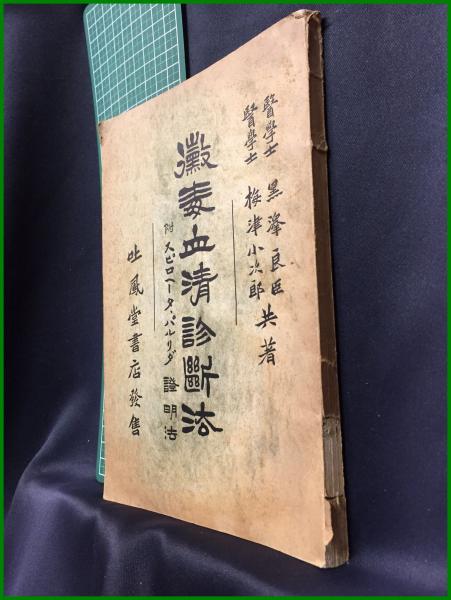 醫學士 黒澤良臣
醫學士 梅津小次郎 共著
黴毒血清診斷法
附 スピロヘータ、パルリダ 證明法
吐鳳堂書店發售